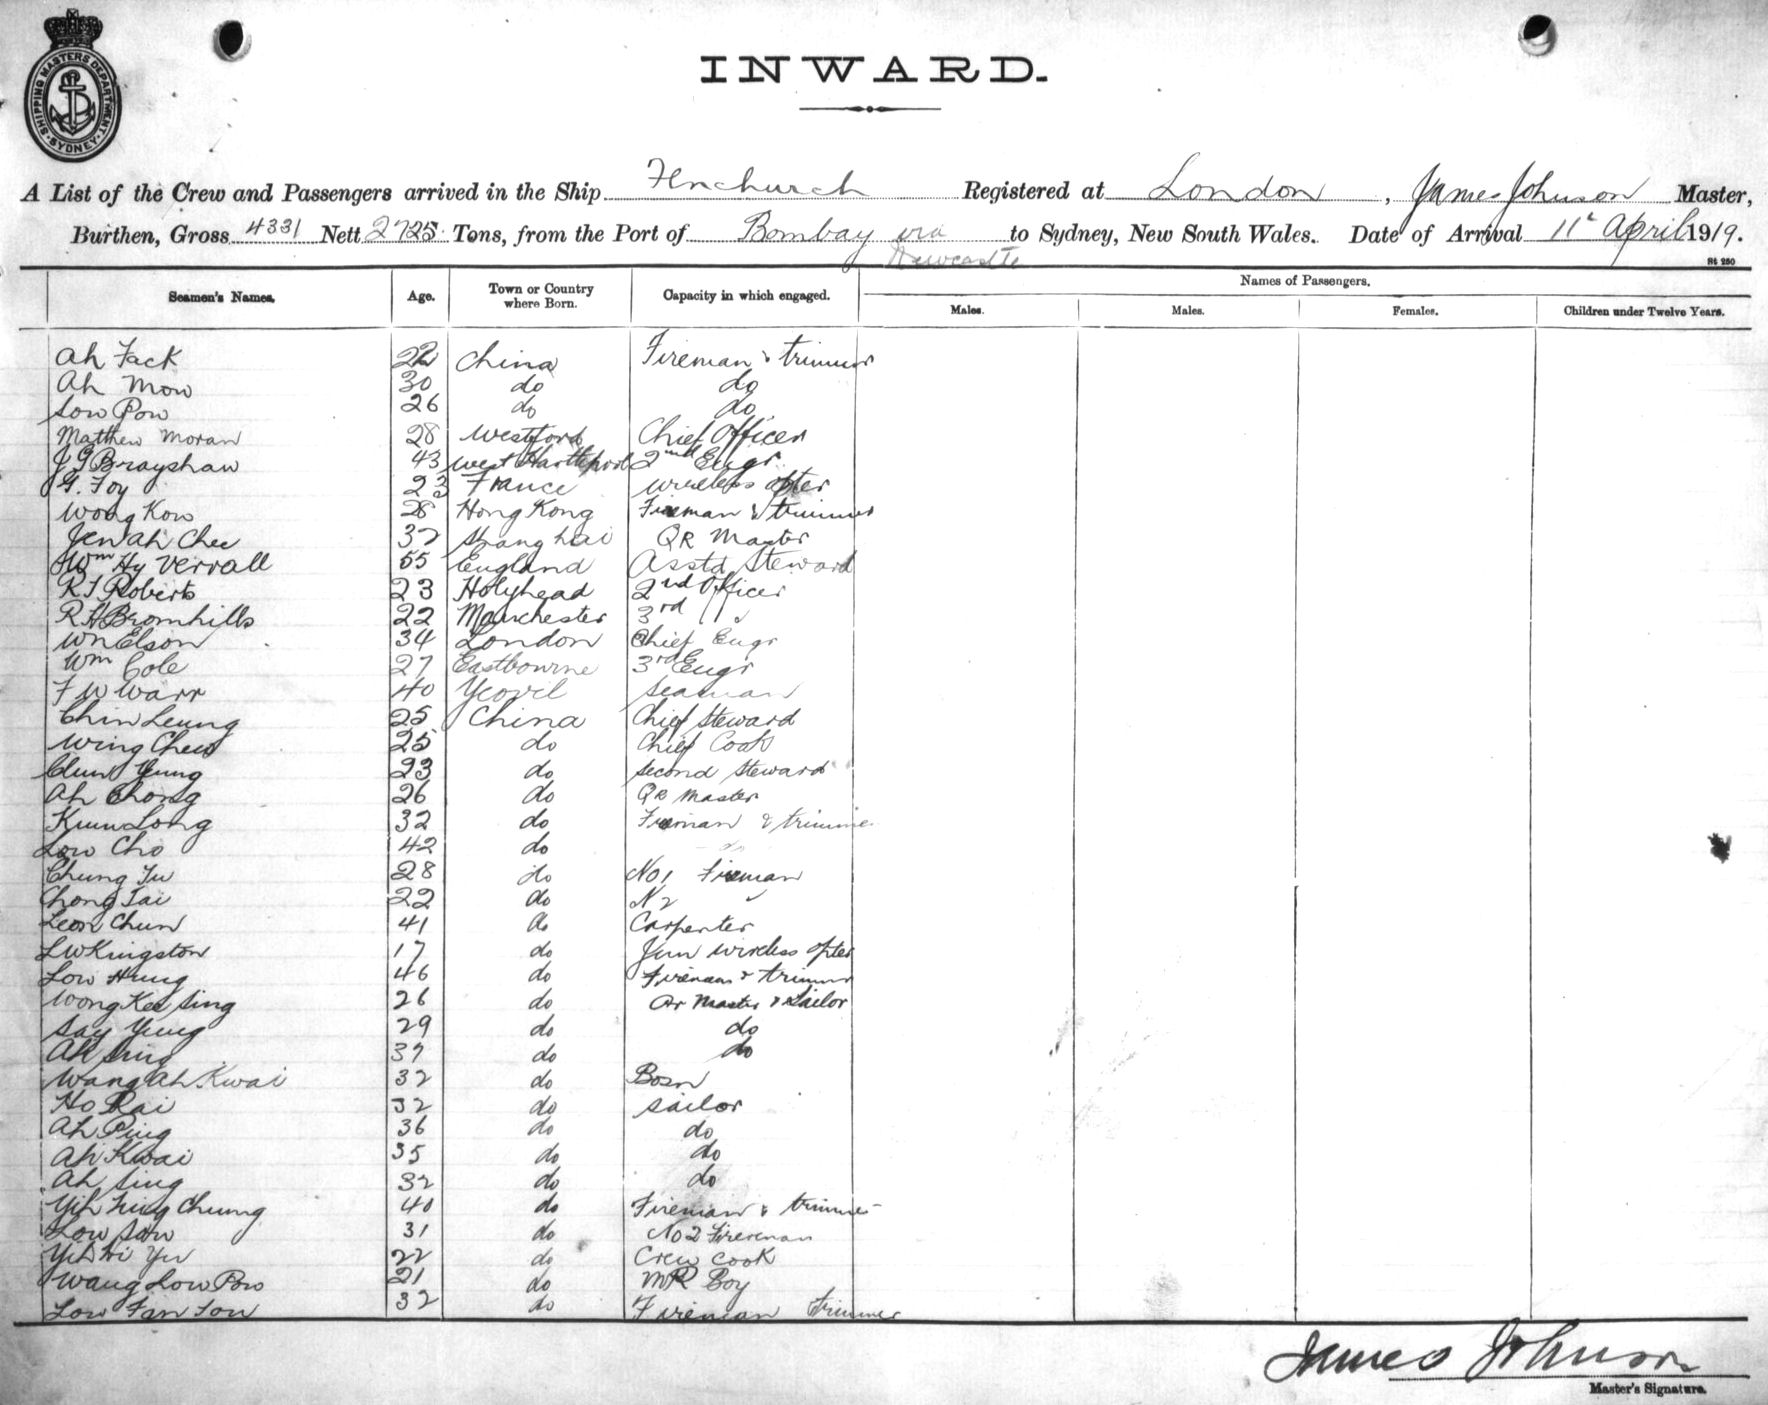 SHIPPING MASTERS DEPARTMENT. SYDNEY.
INWARD.
A List of the Crew and Passengers arrived in the Ship Fenchurch Registered at London, James Johnson Master,
Burthen, Gross 4331 Nett 2725 Tons, from the Port of Bombay via Newcastle to Sydney, New South Wales. Date of Arrival 11th April 1919.
St 250
Seamen's Names. Age. Town or Country where Born. Capacity in which engaged. Names of Passengers.
Males. Males. Females. Children under Twelve Years.
Ah Fack 22 China Fireman & trimmer
Ah Mow 30 do do
Sow Pow 26 do do
Matthew Moran 28 Westford Chief Officer
J G Brayshaw 43 West Hartlepool 2nd Engr.
G. Foy 23 France Wireless opter
Wong Kow 28 Hong Kong Fireman & trimmer
Jen Ah Chee 32 Shanghai QR Master
Wm Hy Verrall 55 England Asstd Steward
R J Roberts 23 Holyhead 2nd Officer
R H Bromhills 22 Manchester 3rd "
Wn Elson 34 London Chief Engr
Wm Cole 27 Eastbourne 3rd Engr
F W Warr 40 Yeovil Seaman
Chin Leung 25 China Chief Steward
Wing Chew 25 do Chief Cook
Chun Yung 23 do Second Steward
Ah Chong 26 do QR Master
Kum Long 32 do Fireman & trimmer
Low Cho 42 do do
Chung Fu 28 do No 1 Fireman
Chong Tai 22 do N 2 "
Leon Chun 41 do Carpenter
L W Kingston 17 do Jun wireless opter
Low Hung 46 do Fireman & trimmer
Wong Kee Sing 26 do Qr Master & Sailor
Say Yung 29 do do
Ah Sing 37 do do
Wang Ah Kwai 32 do Bosn
Ho Rai 32 do Sailor
Ah Ping 36 do do
Ah Kwai 35 do do
Ah Sing 32 do do
Yih Fung Chung 40 do Fireman & trimmer
Low San 31 do No 2 Fireman
Yih Yu 22 do Crew Cook
Wang Low Pow 21 do MR Boy
Low Fan Fou 32 do Fireman Trimmer
James Johnson
Master's Signature.